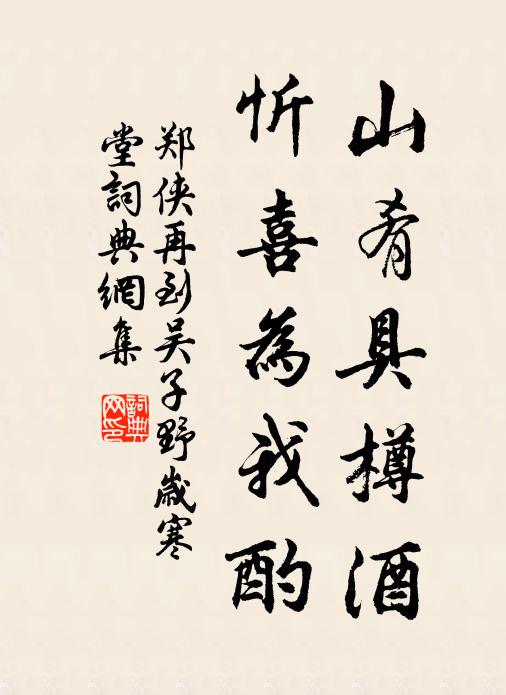 山肴具樽酒
忻喜為我酌
郑侠再到吴子野歲寒
堂詞典網集
詞典
网印